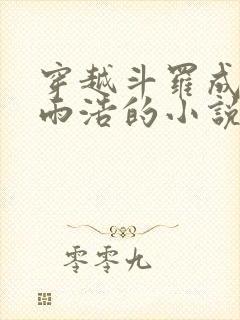 穿越斗罗成
雨浩的小说
零零九